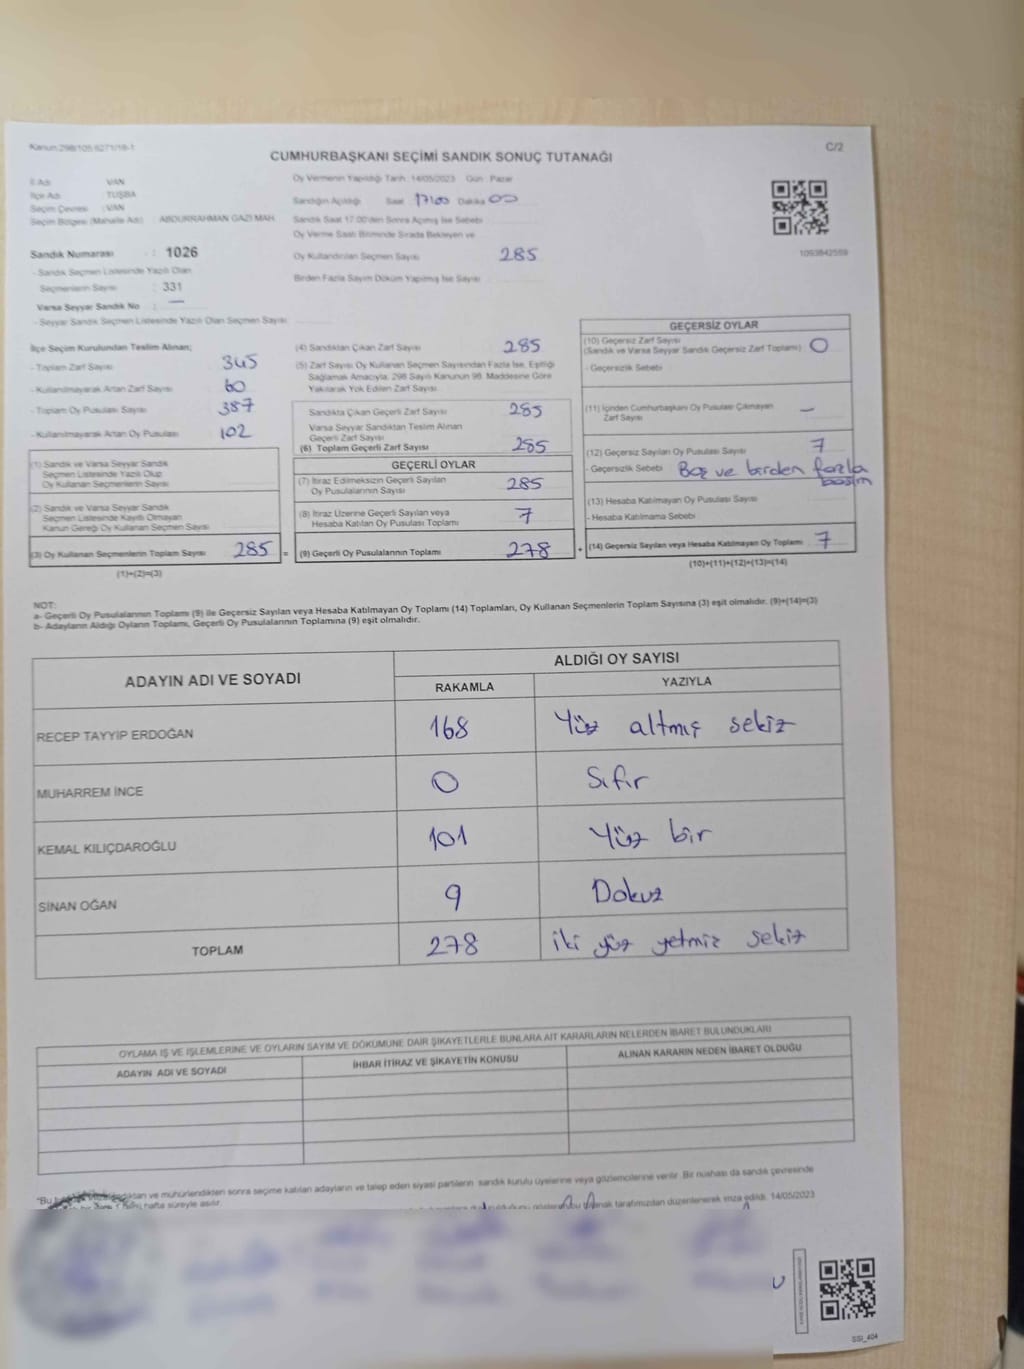 Kanun:298/105 6271/18-1
C/2
CUMHURBAŞKANI SEÇİMİ SANDIK SONUÇ TUTANAĞI
İl Adı : VAN
İlçe Adı : TUŞBA
Seçim Çevresi : VAN
Seçim Bölgesi (Mahalle Adı) : ABDURRAHMAN GAZİ MAH.
Oy Vermenin Yapıldığı Tarih: 14/05/2023 Gün: Pazar
Sandığın Açıldığı Saat 17:00 Dakika 00
Sandık Saat 17.00'den Sonra Açılmış İse Sebebi
Oy Verme Saati Bitiminde Sırada Bekleyen ve
Oy Kullandırılan Seçmen Sayısı 285
Birden Fazla Sayım Döküm Yapılmış İse Sayısı
1093842559
Sandık Numarası : 1026
- Sandık Seçmen Listesinde Yazılı Olan
Seçmenlerin Sayısı : 331
Varsa Seyyar Sandık No : —
- Seyyar Sandık Seçmen Listesinde Yazılı Olan Seçmen Sayısı
İlçe Seçim Kurulundan Teslim Alınan;
- Toplam Zarf Sayısı 345
- Kullanılmayarak Artan Zarf Sayısı 60
- Toplam Oy Pusulası Sayısı 387
- Kullanılmayarak Artan Oy Pusulası 102
(1) Sandık ve Varsa Seyyar Sandık
Seçmen Listesinde Yazılı Olup
Oy Kullanan Seçmenlerin Sayısı
(2) Sandık ve Varsa Seyyar Sandık
Seçmen Listesinde Kayıtlı Olmayan
Kanun Gereği Oy Kullanan Seçmen Sayısı
(3) Oy Kullanan Seçmenlerin Toplam Sayısı 285 =
(1)+(2)=(3)
(4) Sandıktan Çıkan Zarf Sayısı 285
(5) Zarf Sayısı Oy Kullanan Seçmen Sayısından Fazla İse, Eşitliği
Sağlamak Amacıyla, 298 Sayılı Kanunun 98. Maddesine Göre
Yakılarak Yok Edilen Zarf Sayısı
Sandıkta Çıkan Geçerli Zarf Sayısı 285
Varsa Seyyar Sandıktan Teslim Alınan
Geçerli Zarf Sayısı
(6) Toplam Geçerli Zarf Sayısı 285
GEÇERLİ OYLAR
(7) İtiraz Edilmeksizin Geçerli Sayılan
Oy Pusulalarının Sayısı 285
(8) İtiraz Üzerine Geçerli Sayılan veya
Hesaba Katılan Oy Pusulası Toplamı 7
(9) Geçerli Oy Pusulalarının Toplamı 278 +
GEÇERSİZ OYLAR
(10) Geçersiz Zarf Sayısı
(Sandık ve Varsa Seyyar Sandık Geçersiz Zarf Toplamı) 0
- Geçersizlik Sebebi
(11) İçinden Cumhurbaşkanı Oy Pusulası Çıkmayan
Zarf Sayısı —
(12) Geçersiz Sayılan Oy Pusulası Sayısı 7
- Geçersizlik Sebebi Boş ve birden fazla
basım
(13) Hesaba Katılmayan Oy Pusulası Sayısı
- Hesaba Katılmama Sebebi
(14) Geçersiz Sayılan veya Hesaba Katılmayan Oy Toplamı 7
(10)+(11)+(12)+(13)=(14)
NOT:
a- Geçerli Oy Pusulalarının Toplamı (9) ile Geçersiz Sayılan veya Hesaba Katılmayan Oy Toplamı (14) Toplamları, Oy Kullanan Seçmenlerin Toplam Sayısına (3) eşit olmalıdır. (9)+(14)=(3)
b- Adayların Aldığı Oyların Toplamı, Geçerli Oy Pusulalarının Toplamına (9) eşit olmalıdır.
ADAYIN ADI VE SOYADI
ALDIĞI OY SAYISI
RAKAMLA YAZIYLA
RECEP TAYYİP ERDOĞAN 168 Yüz altmış sekiz
MUHARREM İNCE 0 Sıfır
KEMAL KILIÇDAROĞLU 101 Yüz bir
SİNAN OĞAN 9 Dokuz
TOPLAM 278 iki yüz yetmiz sekiz
OYLAMA İŞ VE İŞLEMLERİNE VE OYLARIN SAYIM VE DÖKÜMÜNE DAİR ŞİKAYETLERLE BUNLARA AİT KARARLARIN NELERDEN İBARET BULUNDUKLARI
ADAYIN ADI VE SOYADI İHBAR İTİRAZ VE ŞİKAYETİN KONUSU ALINAN KARARIN NEDEN İBARET OLDUĞU
"Bu ve mühürlendikten sonra seçime katılan adayların ve talep eden siyasi partilerin sandık kurulu üyelerine veya gözlemcilerine verilir. Bir nüshası da sandık çevresinde
hafta süreyle asılır.
tarafımızdan düzenlenerek imza edildi. 14/05/2023
SSİ_404